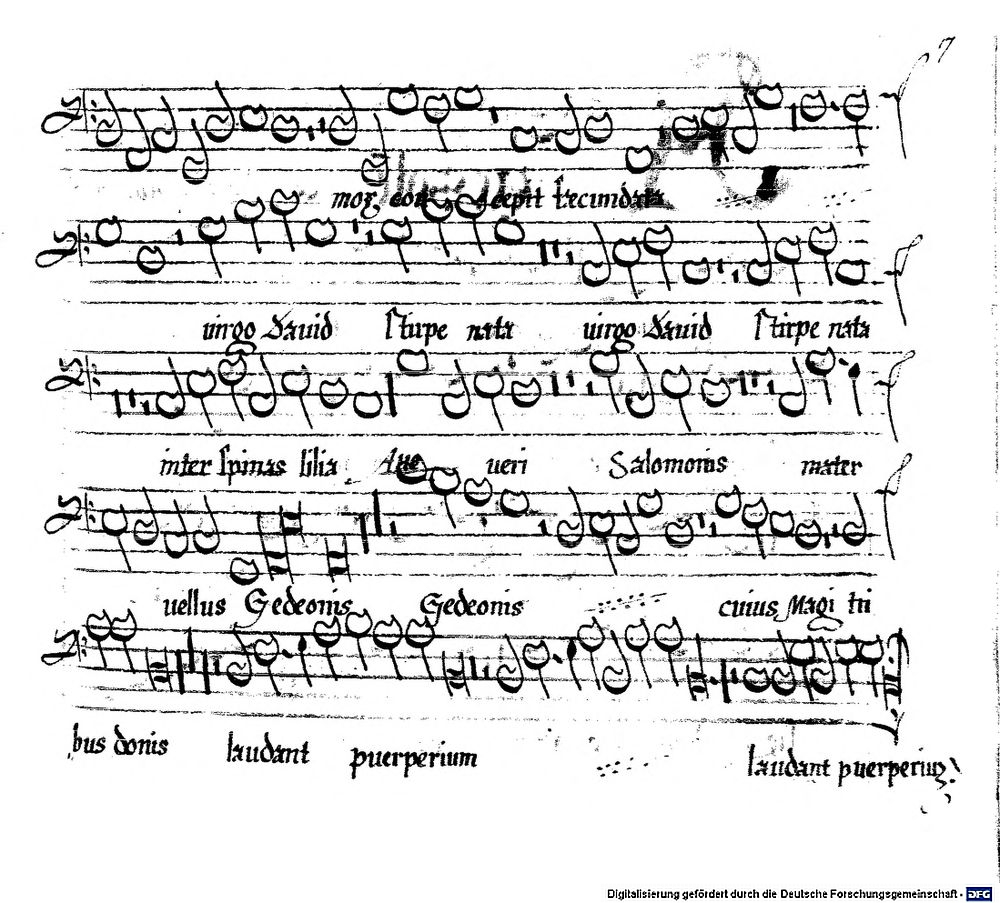 7
mox con cepit fecundata
virgo David stirpe nata virgo David stirpe nata
inter spinas lilia Aue ueri Salomonis mater
uellus Gedeonis Gedeonis cuius Magi tri
bus donis laudant puerperium laudant puerperium
Digitalisierung gefördert durch die Deutsche Forschungsgemeinschaft - DFG